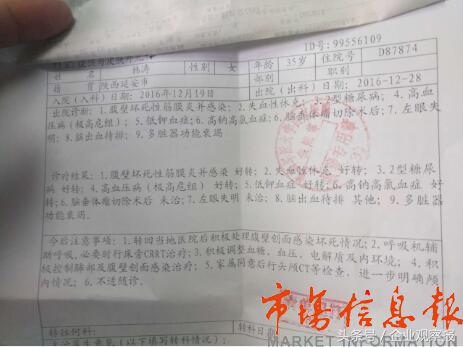 ID号:99556109
姓 名 韩涛 性别 女 年龄 35岁 住院号 D87874
籍 贯 陕西延安市 部别 职别
入院(入科)日期:2016年12月19日 出院(出科)日期:2016-12-28
出院诊断:1.腹壁坏死性筋膜炎并感染;2.失血性休克;3.2型糖尿病;4.高血
压病(极高危组);5.低钾血症;6.高钠高氯血症;6.脑垂体瘤切除术后;7.左眼失
明;8.脑出血待排;9.多脏器功能衰竭
诊疗结果:1.腹壁坏死性筋膜炎并感染 好转;2.失血性休克 好转;3.2型糖尿
病 好转;4.高血压病(极高危组) 好转;5.低钾血症 好转;6.高钠高氯血症 好
转;6.脑垂体瘤切除术后 未治;7.左眼失明 未治;8.脑出血待排 其他;9.多脏
器功能衰竭。
今后注意事项:1.转回当地医院后积极处理腹壁创面感染坏死情况;2.呼吸机辅
助呼吸,必要时行床旁CRRT治疗;3.积极调整血糖、血压、电解质及内环境;4.积
极控制肺部及腹壁创面感染治疗;5.家属同意后行头颅CT等检查,进一步明确颅
内情况;6.不适随诊。
转往何科: 转科日期
(以下填写转科情况):
市场信息报
MARKET INFORMATION
头条号/企业观察报